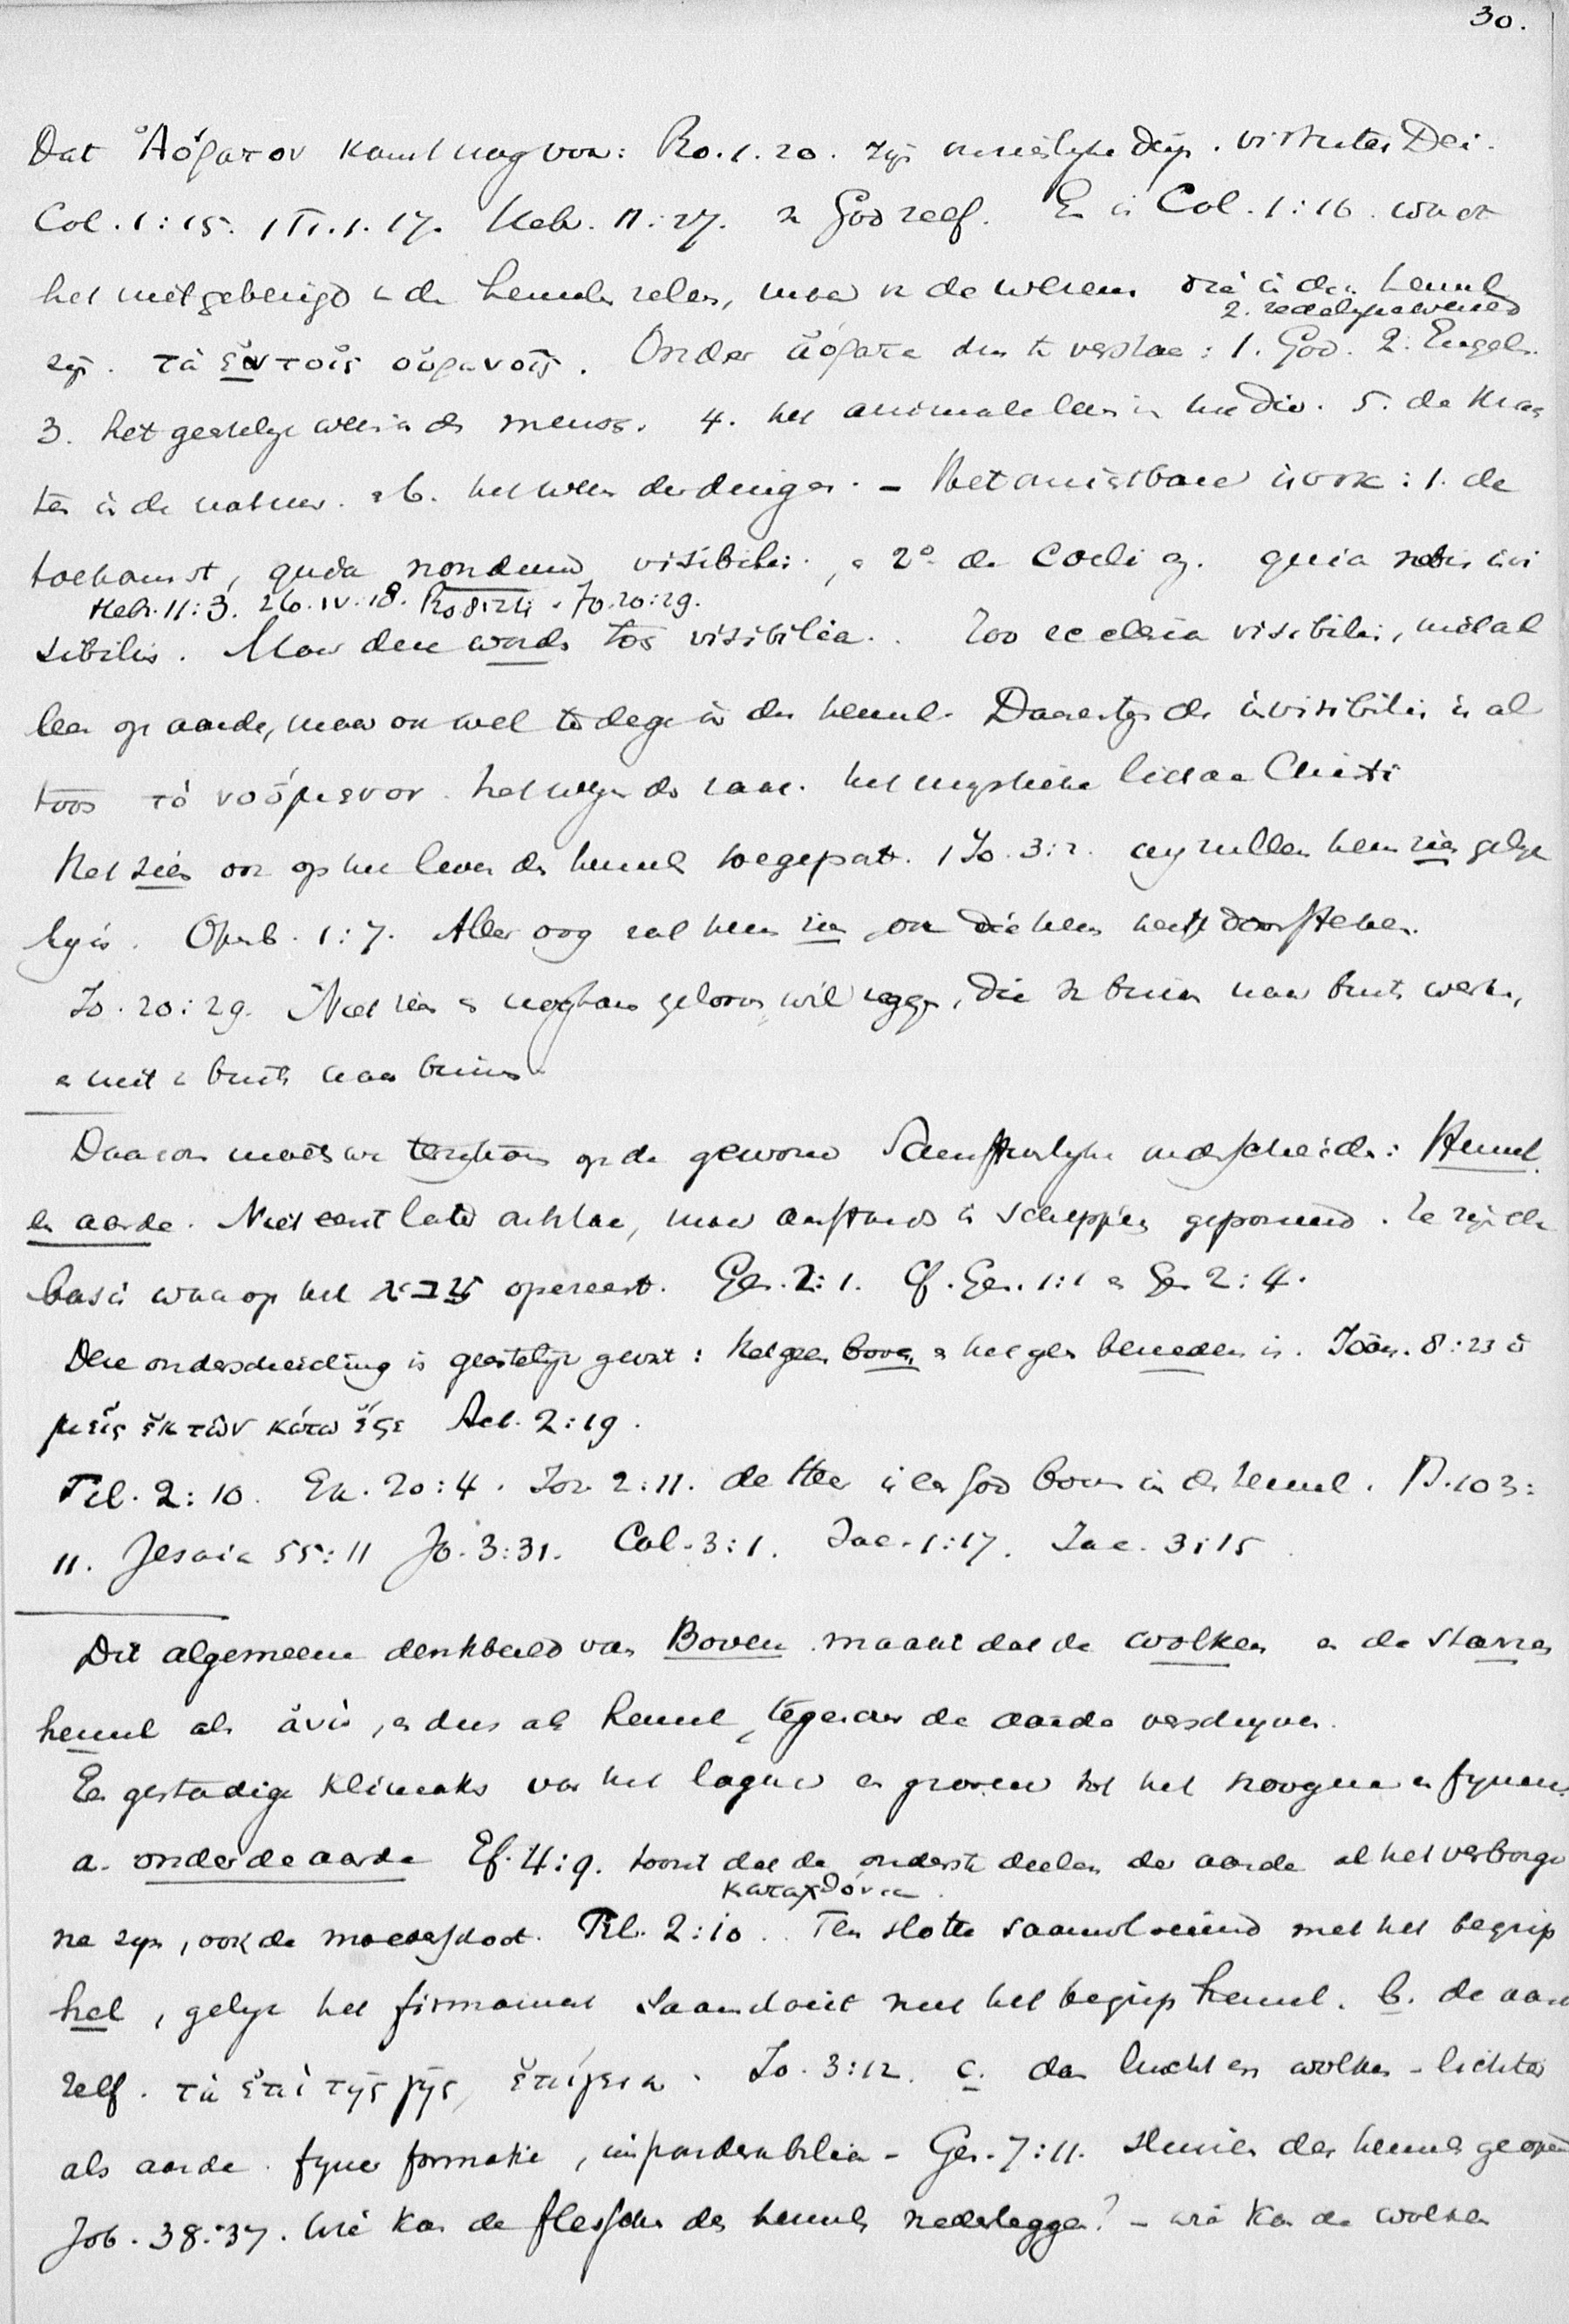 30.
Dat Ἀόρατον komt nog voor: Ro. 1. 20. zijn onzienlyke dingn. virtutes Dei.
Col. 1:15. 1 Ti. 1. 17. Hebr. 11:27. v God zelf. En in Col. 1:16. wordt
het niet gebezigd v de hemelen zelen, maar v de wezens die in den hemel
2. redelyke wereld
zyn. τὰ ἐν τοῖς οὐρανοῖς. Onder ἀόρατα dus te verstaan: 1. God. 2. Engelen.
3. het geestelyk wezen in den mensch. 4. het animale leven in het dier. 5. de krach
ten in de natuur. en 6. het wezen der dingen. – Het onzichtbare is ook: 1. de
toekomst, quia nondum visibilis, en 2° de Coeli ej. quia nobis invi
Hebr. 11:3. 2 Co. IV. 18. Ro 8:24. Jo. 20:29.
sibilis. Maar deze wordt toch visibilia. Zoo ecclesia visibilis, niet al
leen op aarde, maar ook wel te dege in den hemel. Daarentegen de invisibilis is al
toos τὸ νοούμενον. het wezen der zaak. het mystieke lichaam Christi
Het zien ook op het leven des hemels toegepast. 1 Jo. 3:2. wy zullen hem zien gelyk
hy is. Openb. 1:7. Aller oog zal hem zien ook die hem heeft doorstoken.
Jo. 20:29. Niet zien en nogthans gelooven wil zeggen, die v binnen naar buiten werken,
en niet v buiten naar binnen.
Daarom moeten we terugkomen op de gewone Schriftuurlyke onderscheiding: Hemel
en aarde. Niet eerst later ontstaan, maar aanstonds in schepping geponeerd. Ze zijn de
basis waarop het צבא opereert. Gen. 2:1. Cf. Gen. 1:1 en Gen 2:4.
Deze onderscheiding is geestelyk gevat: Hetgeen boven en hetgeen beneden is. Joan. 8:23 ὑ
μεῖς ἐκ τῶν κάτω ἐστε Act. 2:19.
Fil. 2:10. Ex. 20:4. Joz 2:11. de Heer is een God boven in den hemel. Ps. 103:
11. Jesaia 55:11 Jo. 3:31. Col. 3:1. Jac. 1:17. Jac. 3:15.
Dit algemeene denkbeeld van Boven maakt dat de wolken en de starren
hemel als ἄνω, en dus als hemel tegenover de aarde verschynen.
Een gestadige klimaks van het lagere en grovere tot het hoogere en fynere.
a. onder de aarde Ef. 4:9. toont dat de onderste deelen der aarde al het verborge
καταχθόνια
ne zyn, ook de moederschoot. Fil. 2:10. Ten slotte saamvloeiend met het begrip
hel, gelyk het firmament saamvloeit met het begrip hemel. b. de aarde
zelf. τὰ ἐπὶ τῆς γῆς, ἐπίγεια. Jo. 3:12. c. den lucht en wolken – lichter
als aarde. fyner formatie, imponderabilia – Gen. 7:11. sluizen des hemels geopend
Job. 38:37. Wie kan de flesschen des hemels nederleggen? – wie kan de wolken